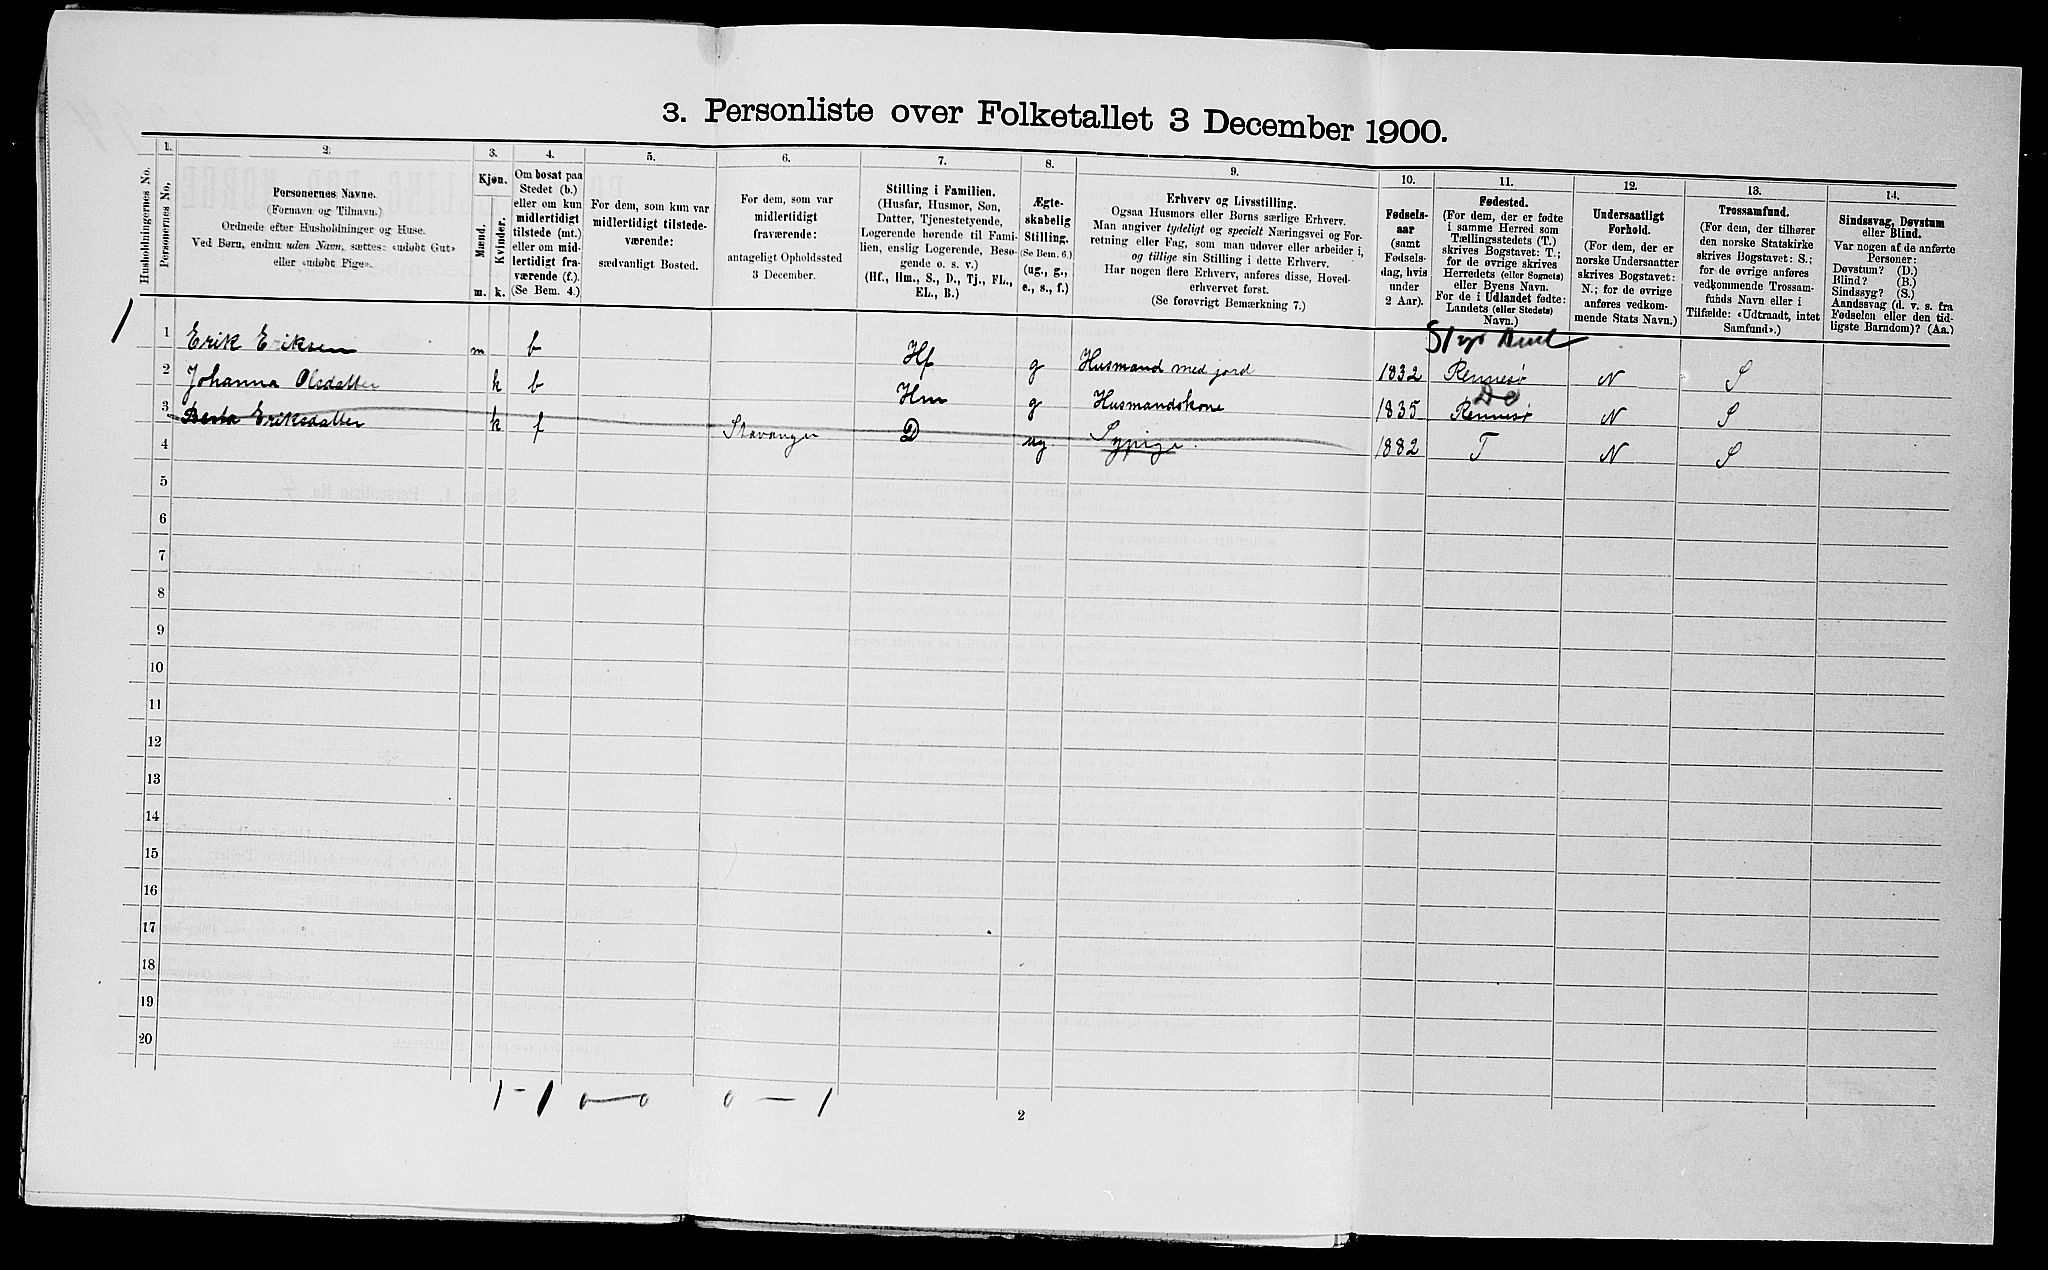 3. Personliste over Folketallet 3 December 1900.
Husholdningernes No.
1.
Personernes No.
2.
Personernes Navne.
(Fornavn og Tilnavn.)
Ordnede efter Husholdninger og Huse.
Ved Børn, endnu uden Navn, sættes: «udøbt Gut»
eller «udøbt Pige».
3.
Kjøn.
Mænd.
Kvinder.
m. k.
4.
Om bosat paa
Stedet (b.)
eller om kun
midlertidigt
tilstede (mt.)
eller om mid-
lertidigt fra-
værende (f.).
(Se Bem. 4.)
5.
For dem, som kun var
midlertidigt tilstede-
værende:
sædvanligt Bosted.
6.
For dem, som var
midlertidigt
fraværende:
antageligt Opholdssted
3 December.
7.
Stilling i Familien.
(Husfar, Husmor, Søn,
Datter, Tjenestetyende,
Logerende hørende til Fami-
lien, enslig Logerende, Besø-
gende o. s. v.)
(Hf., Hm., S., D., Tj., FL.,
EL., B.)
8.
Ægte-
skabelig
Stilling.
(Se Bem. 6.)
(ug., g.,
e., s., f.)
9.
Erhverv og Livsstilling.
Ogsaa Husmors eller Børns særlige Erhverv.
Man angiver tydeligt og specielt Næringsvei og For-
retning eller Fag, som man udøver eller arbeider i,
og tillige sin Stilling i dette Erhverv.
Har nogen flere Erhverv, anføres disse, Hoved-
erhvervet først.
(Se forøvrigt Bemærkning 7.)
10.
Fødsels-
aar
(samt
Fødsels-
dag, hvis
under
2 Aar).
11.
Fødested.
(For dem, der er fødte
i samme Herred som
Tællingsstedets (T.)
skrives Bogstavet: T.;
for de øvrige skrives
Herredets (eller Sognets)
eller Byens Navn.
For de i Udlandet fødte:
Landets (eller Stedets)
Navn.)
12.
Undersaatligt
Forhold.
(For dem, der er
norske Undersaatter
skrives Bogstavet:
N.; for de øvrige
anføres vedkom-
mende Stats Navn.)
13.
Trossamfund.
(For dem, der tilhører
den norske Statskirke
skrives Bogstavet: S.;
for de øvrige anføres
vedkommende Trossam-
funds Navn eller i
Tilfælde: «Udtraadt, intet
Samfund».)
14.
Sindssvag, Døvstum
eller Blind.
Var nogen af de anførte
Personer:
Døvstum? (D.)
Blind? (B.)
Sindssyg? (S.)
Aandssvag (d. v. s. fra
Fødselen eller den tid-
ligste Barndom)? (Aa.)
1 1 Erik Eriksen m b Hf g Husmand med jord 1832 Rennesø N S
2 Johanna Olsdatter k b Hm g Husmandskone 1835 Rennesø N S
3 Berta Eriksdatter k f Stavanger D ug Sypige. 1882 T N S
4
5
6
7
8
9
10
11
12
13
14
15
16
17
18
19
20
1-1 0-0 0-1
2